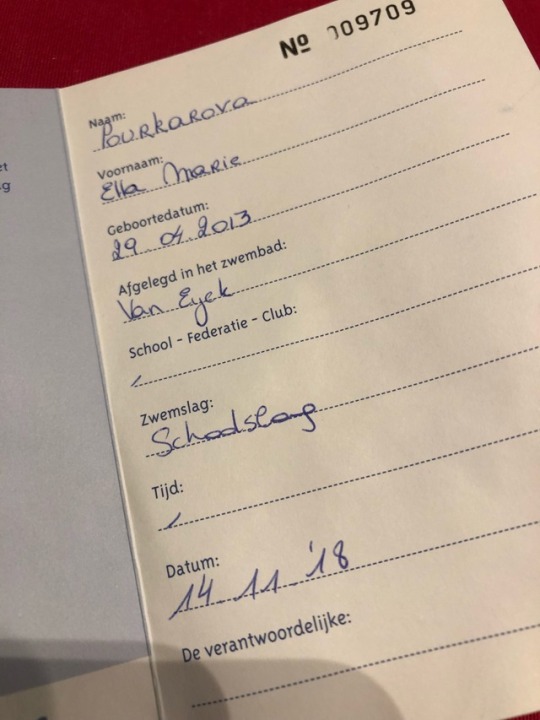 Nº 009709
Naam:
Pourkarova
Voornaam:
Ella Marie
Geboortedatum:
29.04.2013
Afgelegd in het zwembad:
Van Eyck
School - Federatie - Club:
/
Zwemslag:
Schoolslag
Tijd:
/
Datum:
14.11.'18
De verantwoordelijke: